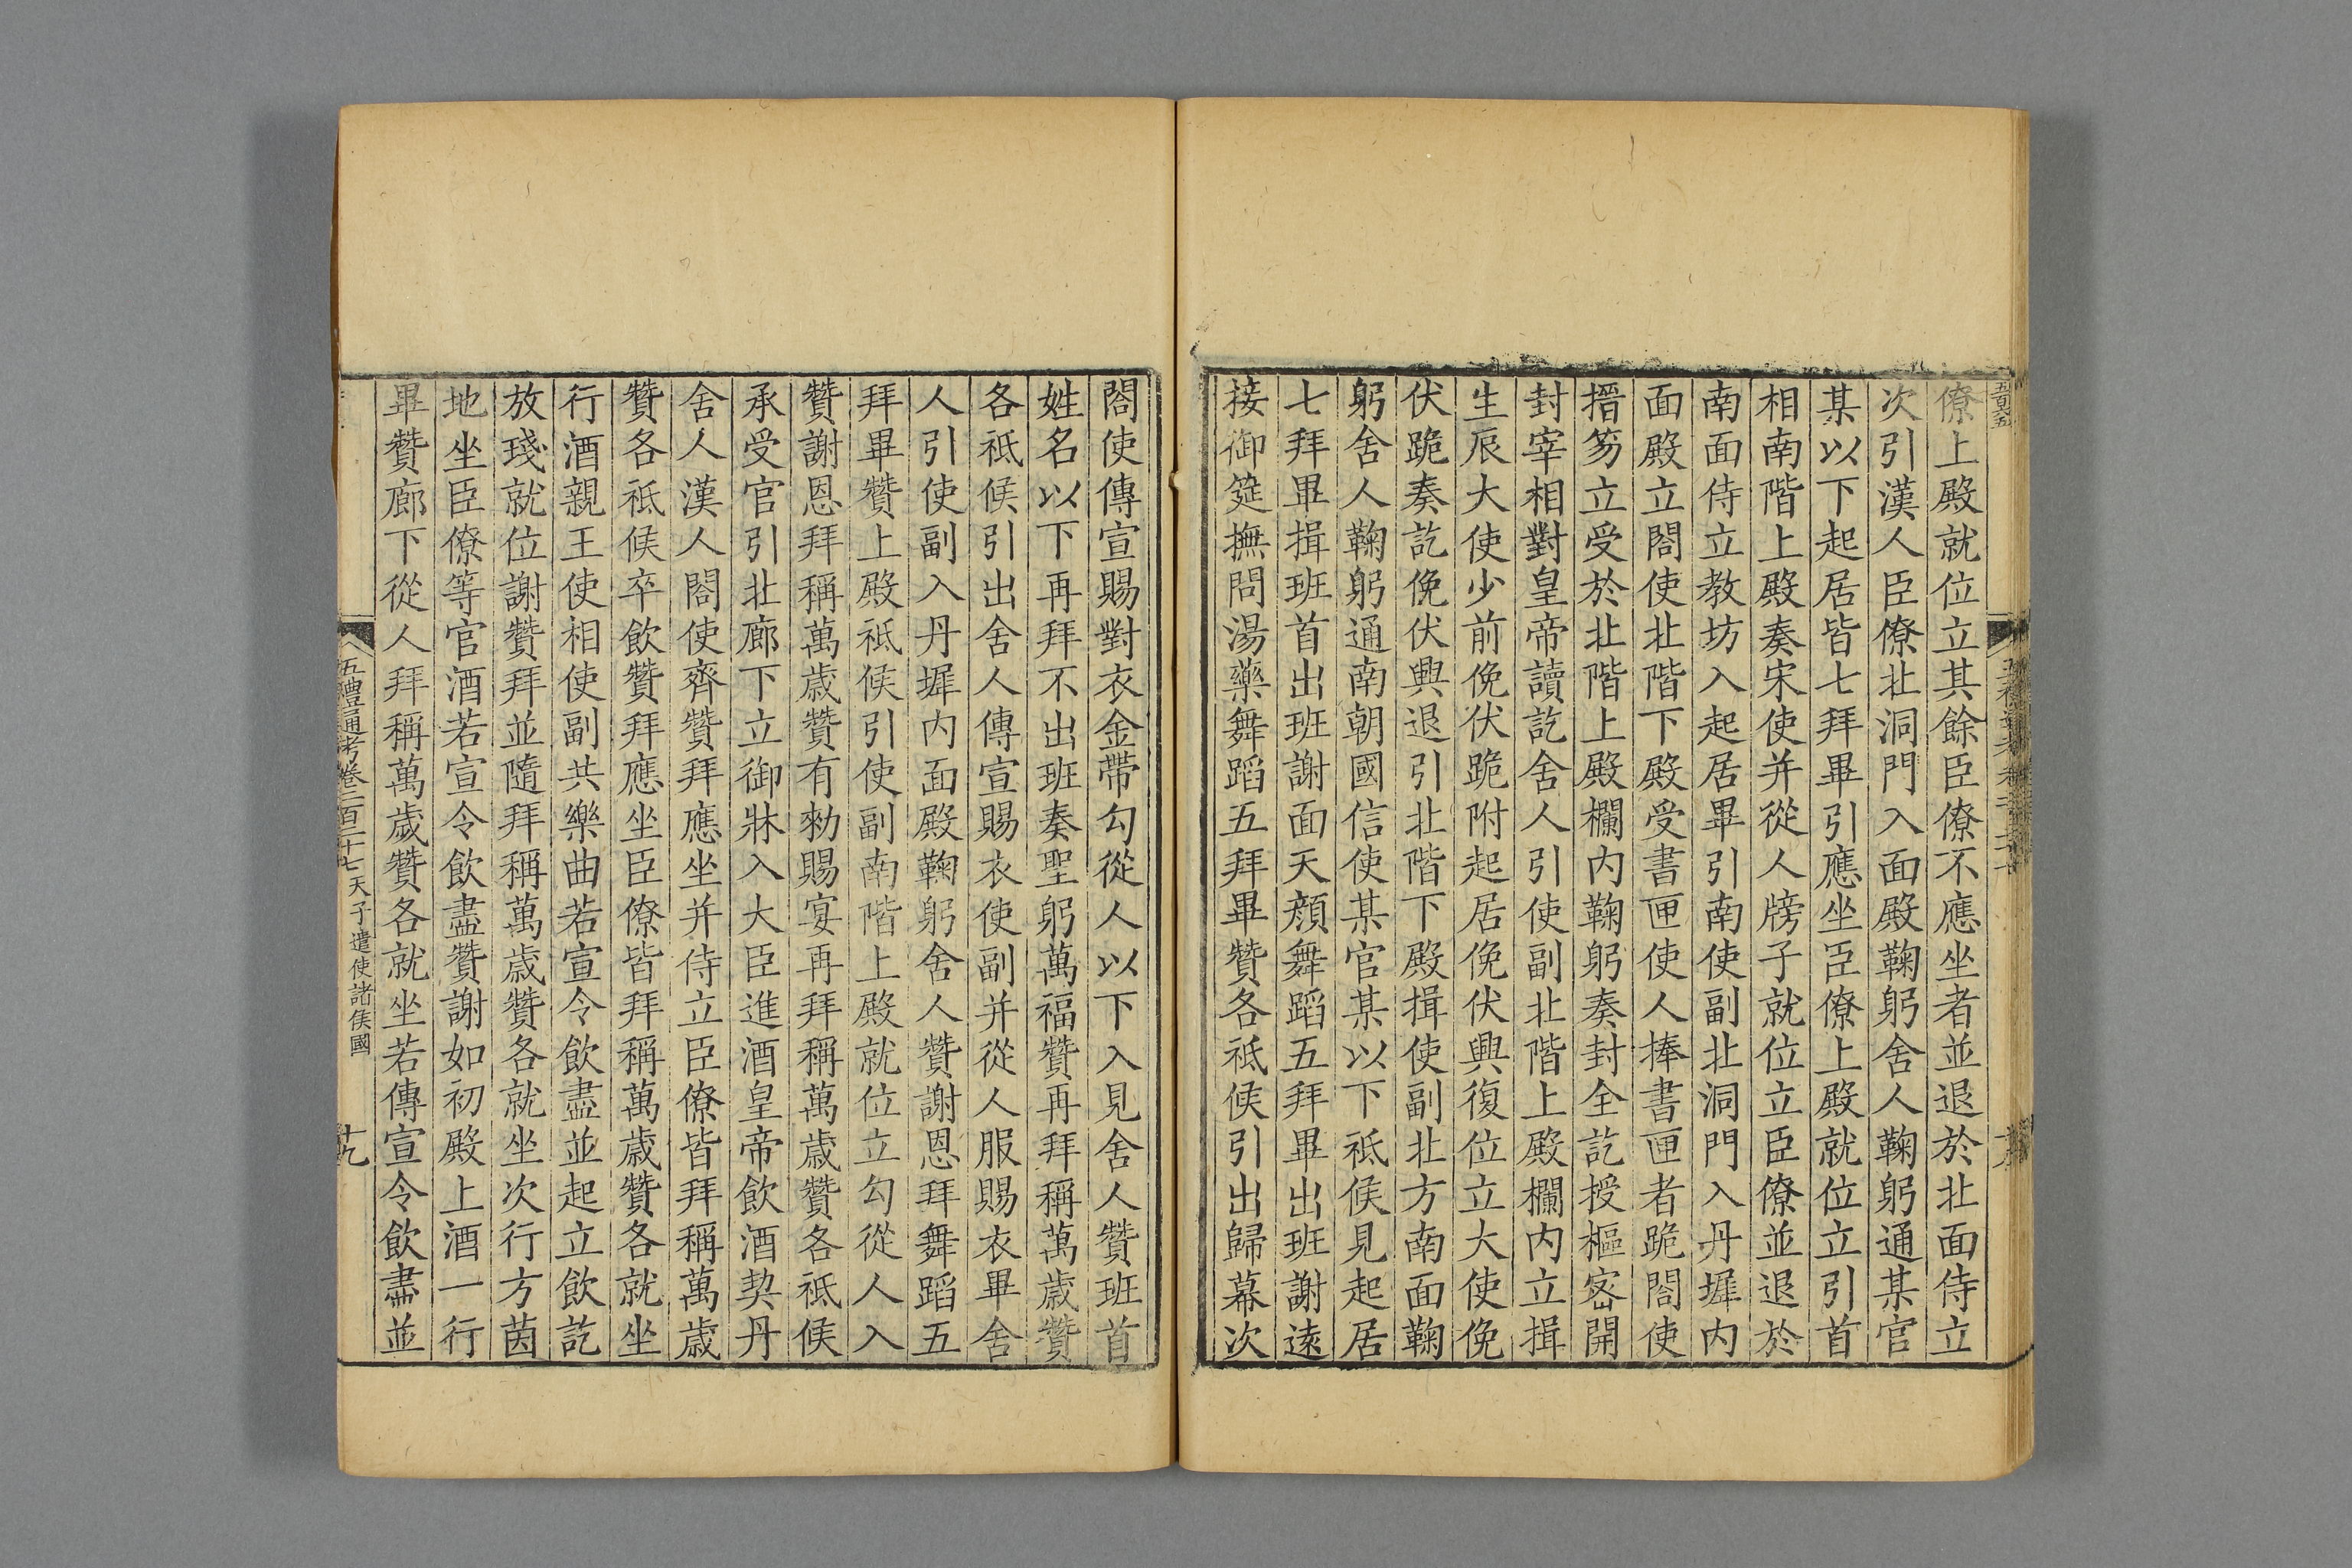 僚上殿就位立其餘臣僚不應坐者並退於北面侍立
次引漢人臣僚北洞門入面殿鞠躬舍人鞠躬通某官
某以下起居皆七拜畢引應坐臣僚上殿就位立引首
相南階上殿奏宋使并從人牓子就位立臣僚並退於
南面侍立教坊入起居畢引南使副北洞門入丹墀内
面殿立閤使北階下殿受書匣使人捧書匣者跪閤使
搢笏立受於北階上殿欄内鞠躬奏封全訖授樞密開
封宰相對皇帝讀訖舍人引使副北階上殿欄内立揖
生辰大使少前俛伏跪附起居俛伏興復位立大使俛
伏跪奏訖俛伏興退引北階下殿揖使副北方南面鞠
躬舍人鞠躬通南朝國信使某官某以下祗候見起居
七拜畢揖班首出班謝面天顔舞蹈五拜畢出班謝遠
接御筵撫問湯藥舞蹈五拜畢贊各祗候引出歸幕次
閤使傳宣賜對衣金帶勾從人以下入見舍人贊班首
姓名以下再拜不出班奏聖躬萬福贊再拜稱萬歲贊
各祗候引出舍人傳宣賜衣使副并從人服賜衣畢舍
人引使副入丹墀内面殿鞠躬舍人贊謝恩拜舞蹈五
拜畢贊上殿祗候引使副南階上殿就位立勾從人入
贊謝恩拜稱萬歲贊有勑賜宴再拜稱萬歲贊各祗候
承受官引北廊下立御牀入大臣進酒皇帝飲酒契丹
舍人漢人閤使齊贊拜應坐并侍立臣僚皆拜稱萬歲
贊各祗候卒飲贊拜應坐臣僚皆拜稱萬歲贊各就坐
行酒親王使相使副共樂曲若宣令飲盡並起立飲訖
放琖就位謝贊拜並隨拜稱萬歲贊各就坐次行方茵
地坐臣僚等官酒若宣令飲盡贊謝如初殿上酒一行
畢贊廊下從人拜稱萬歲贊各就坐若傳宣令飲盡並
五禮通考卷二百二十七 天子遣使諸侯國 十九